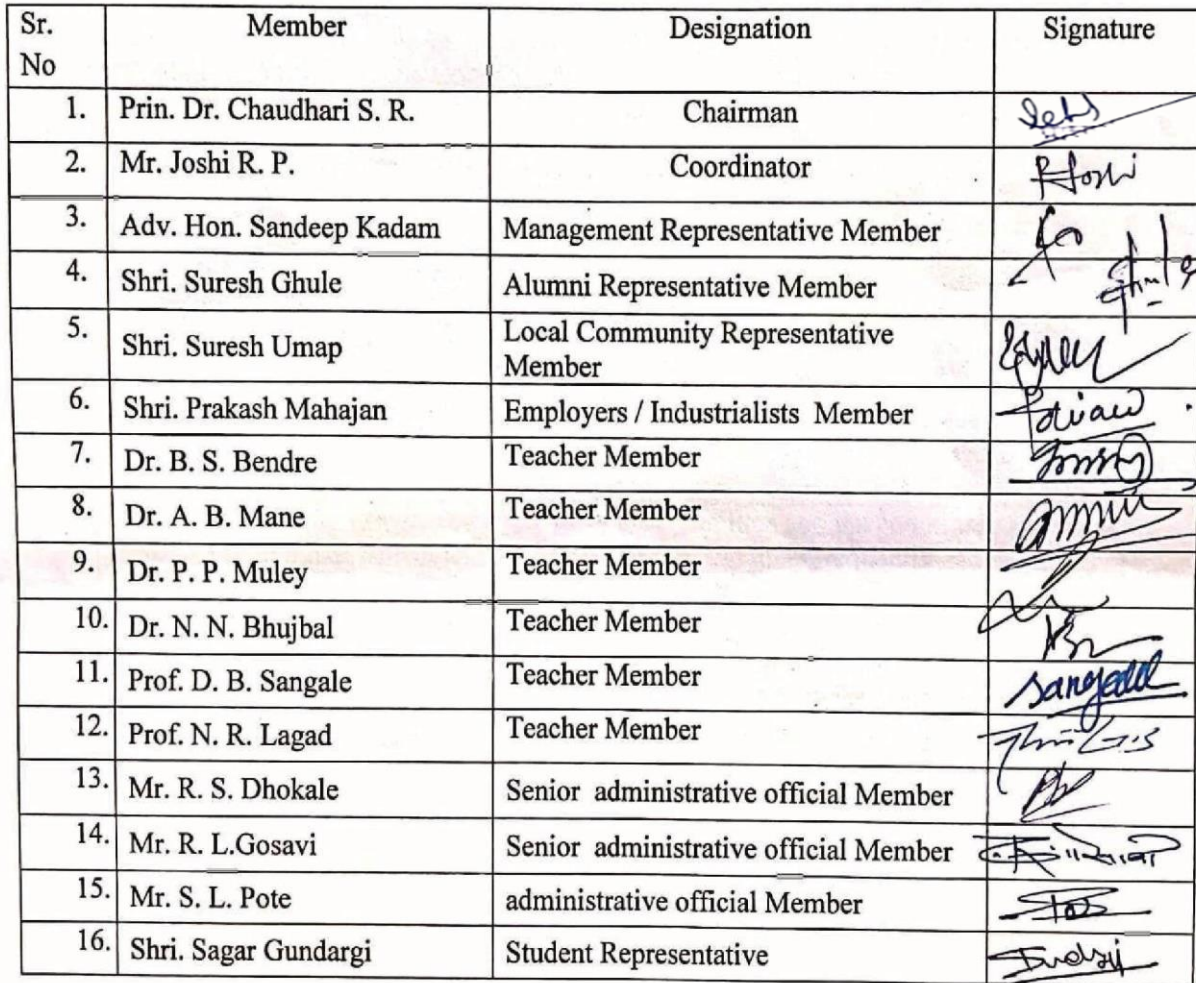 Sr. No Member Designation Signature
1. Prin. Dr. Chaudhari S. R. Chairman
2. Mr. Joshi R. P. Coordinator RJoshi
3. Adv. Hon. Sandeep Kadam Management Representative Member
4. Shri. Suresh Ghule Alumni Representative Member
5. Shri. Suresh Umap Local Community Representative Member
6. Shri. Prakash Mahajan Employers / Industrialists Member
7. Dr. B. S. Bendre Teacher Member
8. Dr. A. B. Mane Teacher Member
9. Dr. P. P. Muley Teacher Member
10. Dr. N. N. Bhujbal Teacher Member
11. Prof. D. B. Sangale Teacher Member
12. Prof. N. R. Lagad Teacher Member
13. Mr. R. S. Dhokale Senior administrative official Member
14. Mr. R. L.Gosavi Senior administrative official Member
15. Mr. S. L. Pote administrative official Member
16. Shri. Sagar Gundargi Student Representative